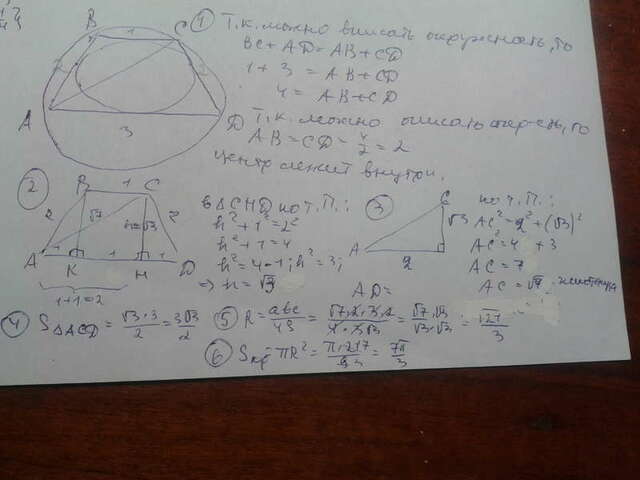 B 1 C
2
A 3 D
① Т.к. можно вписать окружность, то
BC + AD = AB + CD
1 + 3 = AB + CD
4 = AB + CD
Т.к. можно описать окр-сть, то
AB = CD = 4/2 = 2
центр лежит внутри.
② B 1 C
2 √7 h=√3 2
A 1 K 1 H 1 D
1+1=2
в △CHD по т. П.:
h² + 1² = 2²
h² + 1 = 4
h² = 4 - 1; h² = 3;
⇒ h = √3
③ C
√3
A 2
по т. П.:
AC² = 2² + (√3)²
AC² = 4 + 3
AC = 7
AC = √7
AD =
④ S△ACD = √3·3/2 = 3√3/2
⑤ R = abc/4S = = √7·√3/√3·√3 = √21/3
⑥ Sкр = πR² = = 7π/3